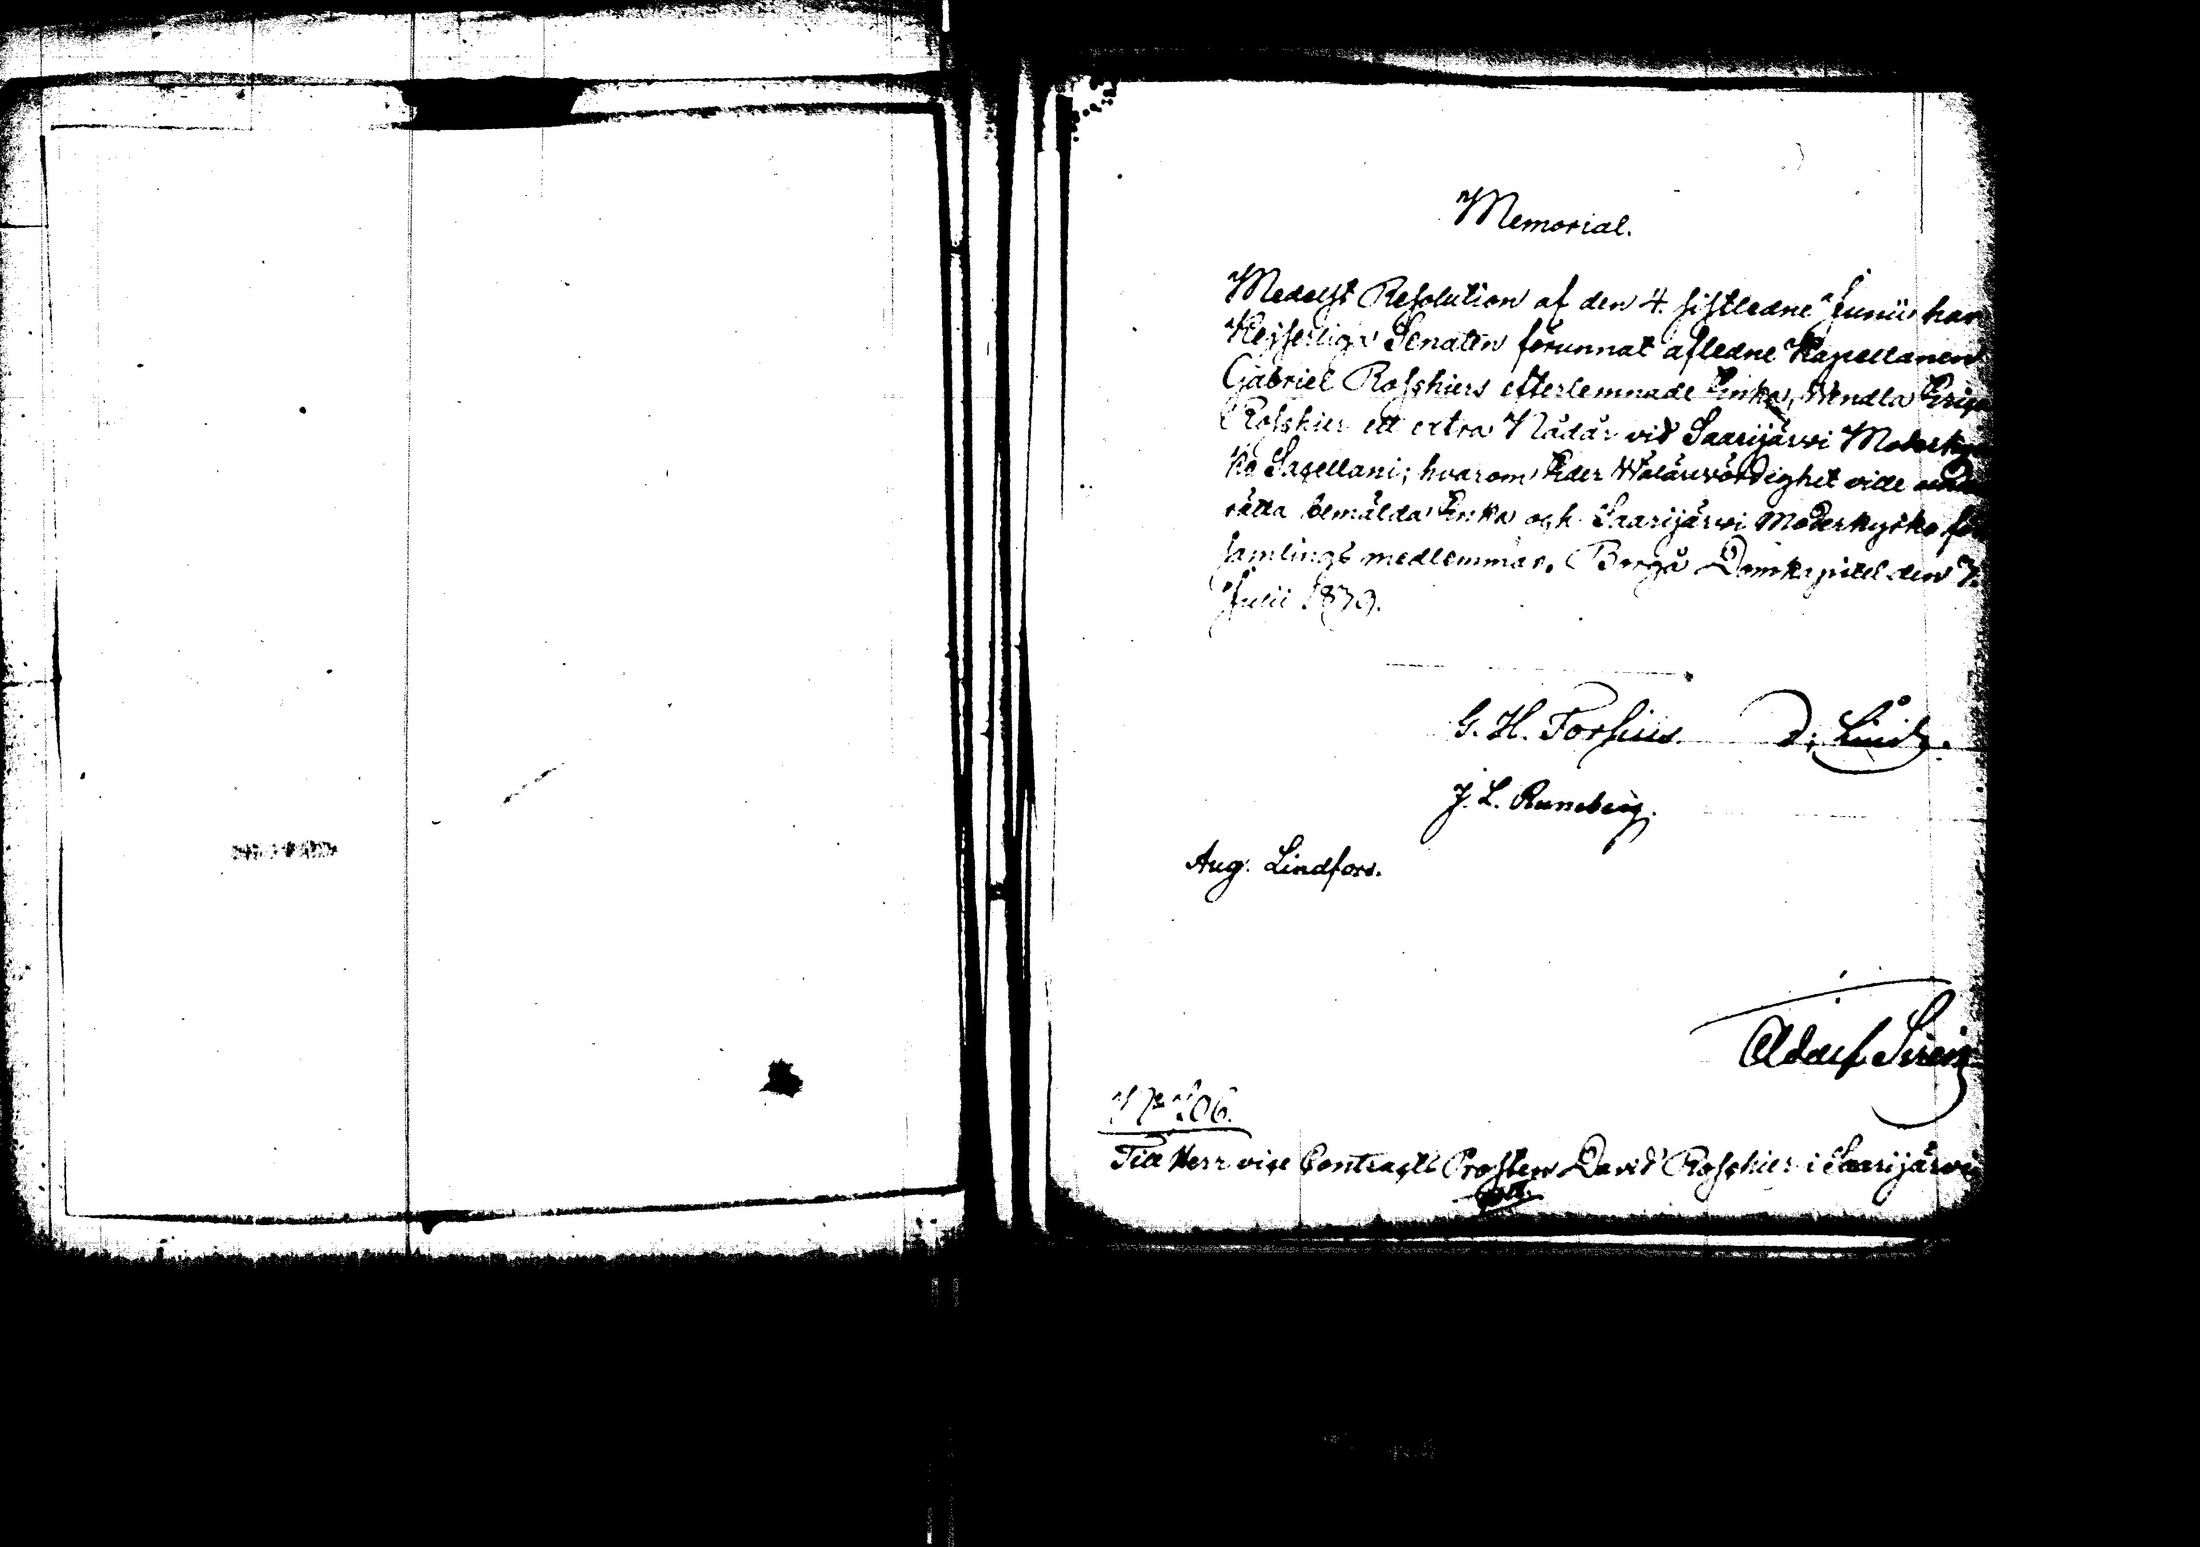 Memorial.
Medelst Resolution af den 4. sistledne Junii har
Kejserliga Senaten förunnat afledne Kapellanen
Gabriel Roschiers efterlemnade Enka, Wendla
Roschier ett extra Nådår vid Saarijärvi Moderkyr
ko Sacellani; hvarom Eder Wälärevördighet ville under
rätta bemälda Enka och Saarijärvi Moderkyrko för
samlings medlemmar. Borgå Domkapitel den 7.
Julii
G. H. Forsius.
J. L. Runeberg.
Aug. Lindfors.
Adolf
Till Herr vice Contracts Prosten David Roschier i Saarijärvi